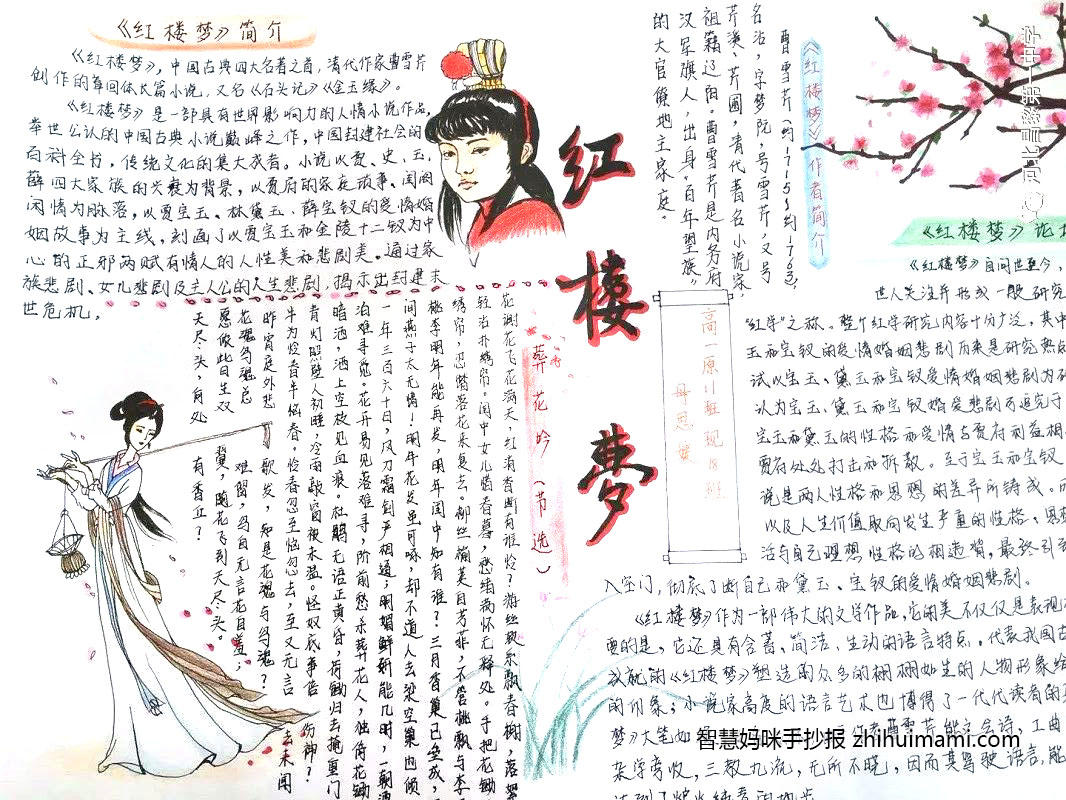 《红楼梦》简介
《红楼梦》，中国古典四大名著之首，清代作家曹雪芹
创作的章回体长篇小说，又名《石头记》《金玉缘》。
《红楼梦》是一部具有世界影响力的人情小说作品，
举世公认的中国古典小说巅峰之作，中国封建社会的
百科全书，传统文化的集大成者。小说以贾、史、王、
薛四大家族的兴衰为背景，以贾府的家庭琐事、闺阁
闲情为脉落，以贾宝玉、林黛玉、薛宝钗的爱情婚
姻故事为主线，刻画了以贾宝玉和金陵十二钗为中
心的正邪两赋有情人的人性美和悲剧美。通过家
族悲剧、女儿悲剧及主人公的人生悲剧，揭示出封建末
世危机。
红楼梦
《红楼梦》作者简介
曹雪芹（约1715~约1763），
名沾，字梦阮，号雪芹，又号
芹溪、芹圃，清代著名小说家
祖籍辽阳。曹雪芹是内务府
汉军旗人，出身“百年望族”
的大官僚地主家庭。
葬花吟（节选）
花谢花飞花满天，红消香断有谁怜？游丝软系飘春榭，落絮
轻沾扑绣帘。闺中女儿惜春暮，愁绪满怀无释处。手把花锄
绣帘，忍踏落花来复去。柳丝榆荚自芳菲，不管桃飘与李
桃李明年能再发，明年闺中知有谁？三月香巢已垒成，
间燕子太无情！明年花发虽可啄，却不道人去梁空巢也倾
一年三百六十日，风刀霜剑严相逼；明媚鲜妍能几时，一朝漂
泊难寻觅。花开易见落难寻，阶前愁杀葬花人，独倚花锄
暗洒，洒上空枝见血痕。杜鹃无语正黄昏，荷锄归去掩重门
青灯照壁人初睡，冷雨敲窗被未温。怪奴底事倍伤神？
半为怜春半恼春。怜春忽至恼忽去，至又无言去未闻
昨宵庭外悲歌发，知是花魂与鸟魂？
花魂鸟魂总难留，鸟自无言花自羞；
愿侬此日生双翼，随花飞到天尽头。
天尽头，何处有香丘？
高一原11班现18班
《红楼梦》论
《红楼梦》自问世至今，
世人关注并形成一般研究
“红学”之称。整个红学研究内容十分广泛，其中
玉和宝钗的爱情婚姻悲剧历来是研究热
试以宝玉、黛玉和宝钗爱情婚姻悲剧为
认为宝玉、黛玉和宝钗婚爱悲剧可追究于
宝玉和黛玉的性格和爱情与贾府利益相
贾府处处打击和拆散。至于宝玉和宝钗
说是两人性格和思想的差异所铸成。而
以及人生价值取向发生严重的性格、思想
活与自己理想性格的相造背，最终引
入空门，彻底了断自己和黛玉、宝钗的爱情婚姻悲剧。
《红楼梦》作为一部伟大的文学作品，它的美不仅仅是表现
要的是，它还具有含蓄、简洁、生动的语言特点。代表我国古
成就的《红楼梦》塑造的众多的栩栩如生的人物形象给
的印象；小说家高度的语言艺术也博得了一代代读者的
梦》大笔如 作者曹雪芹能文会诗，工曲
杂学旁收，三教九流，无所不晓，因而其驾驶语言，能
达到了炉火纯青的地步
智慧妈咪手抄报 zhihuimami.com